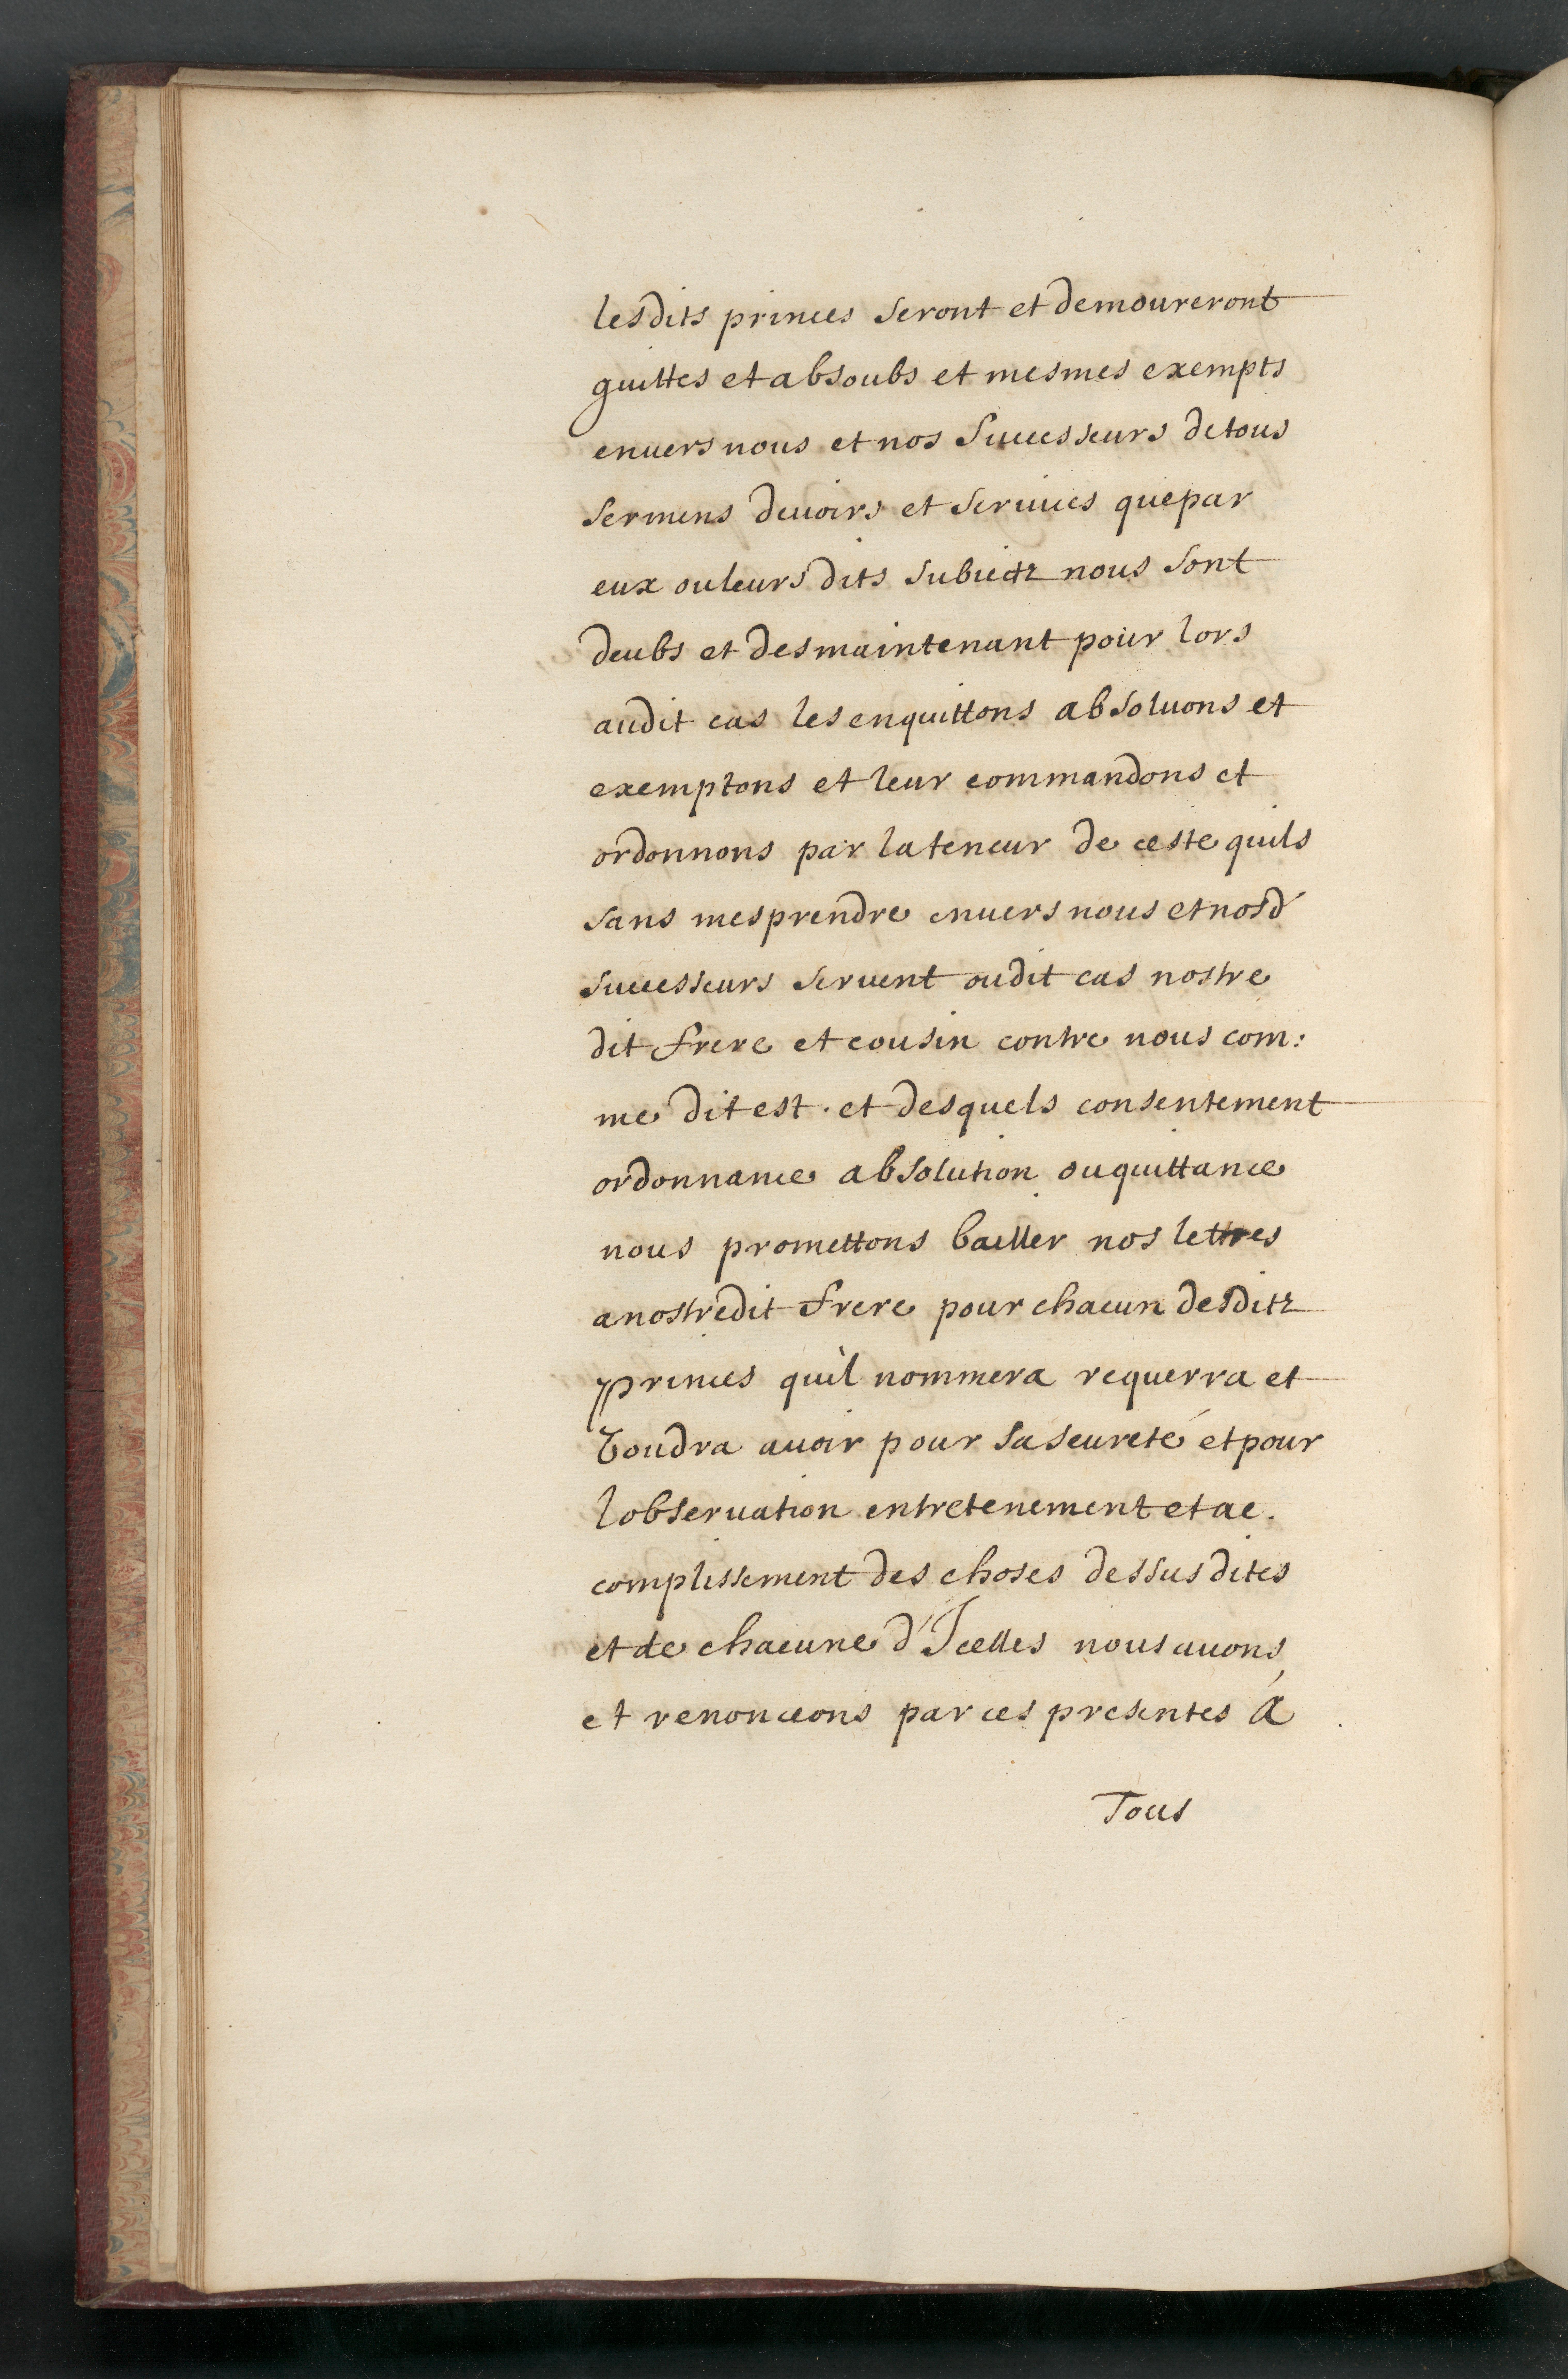 lesdits princes seront et demoureront
quittes et absoubs et mesmes exempts
enuers nous et nos Successeurs de tous
sermens deuoirs et seruices que par
eux ou leurs dits subiectz nous sont
deubs et des maintenant pour lors
audit cas les enquittons absoluons et
exemptons et leur commandons et
ordonnons par la teneur de ceste quils
sans mesprendre enuers nous et nosd
successeurs seruent oudit cas nostre
dit frere et cousin contre nous com:
me dit est . et desquels consentement
ordonnance absolution ou quittance
nous promettons bailler nos lettres
a nostredit frere pour chacun desditz
princes quil nommera requerra et
voudra auoir pour sa seureté et pour
lobseruation entretenement et ac.
complissement des choses dessus dites
et de chacune d'Icelles nous auons
et renonceons par ces presentes á
Tous